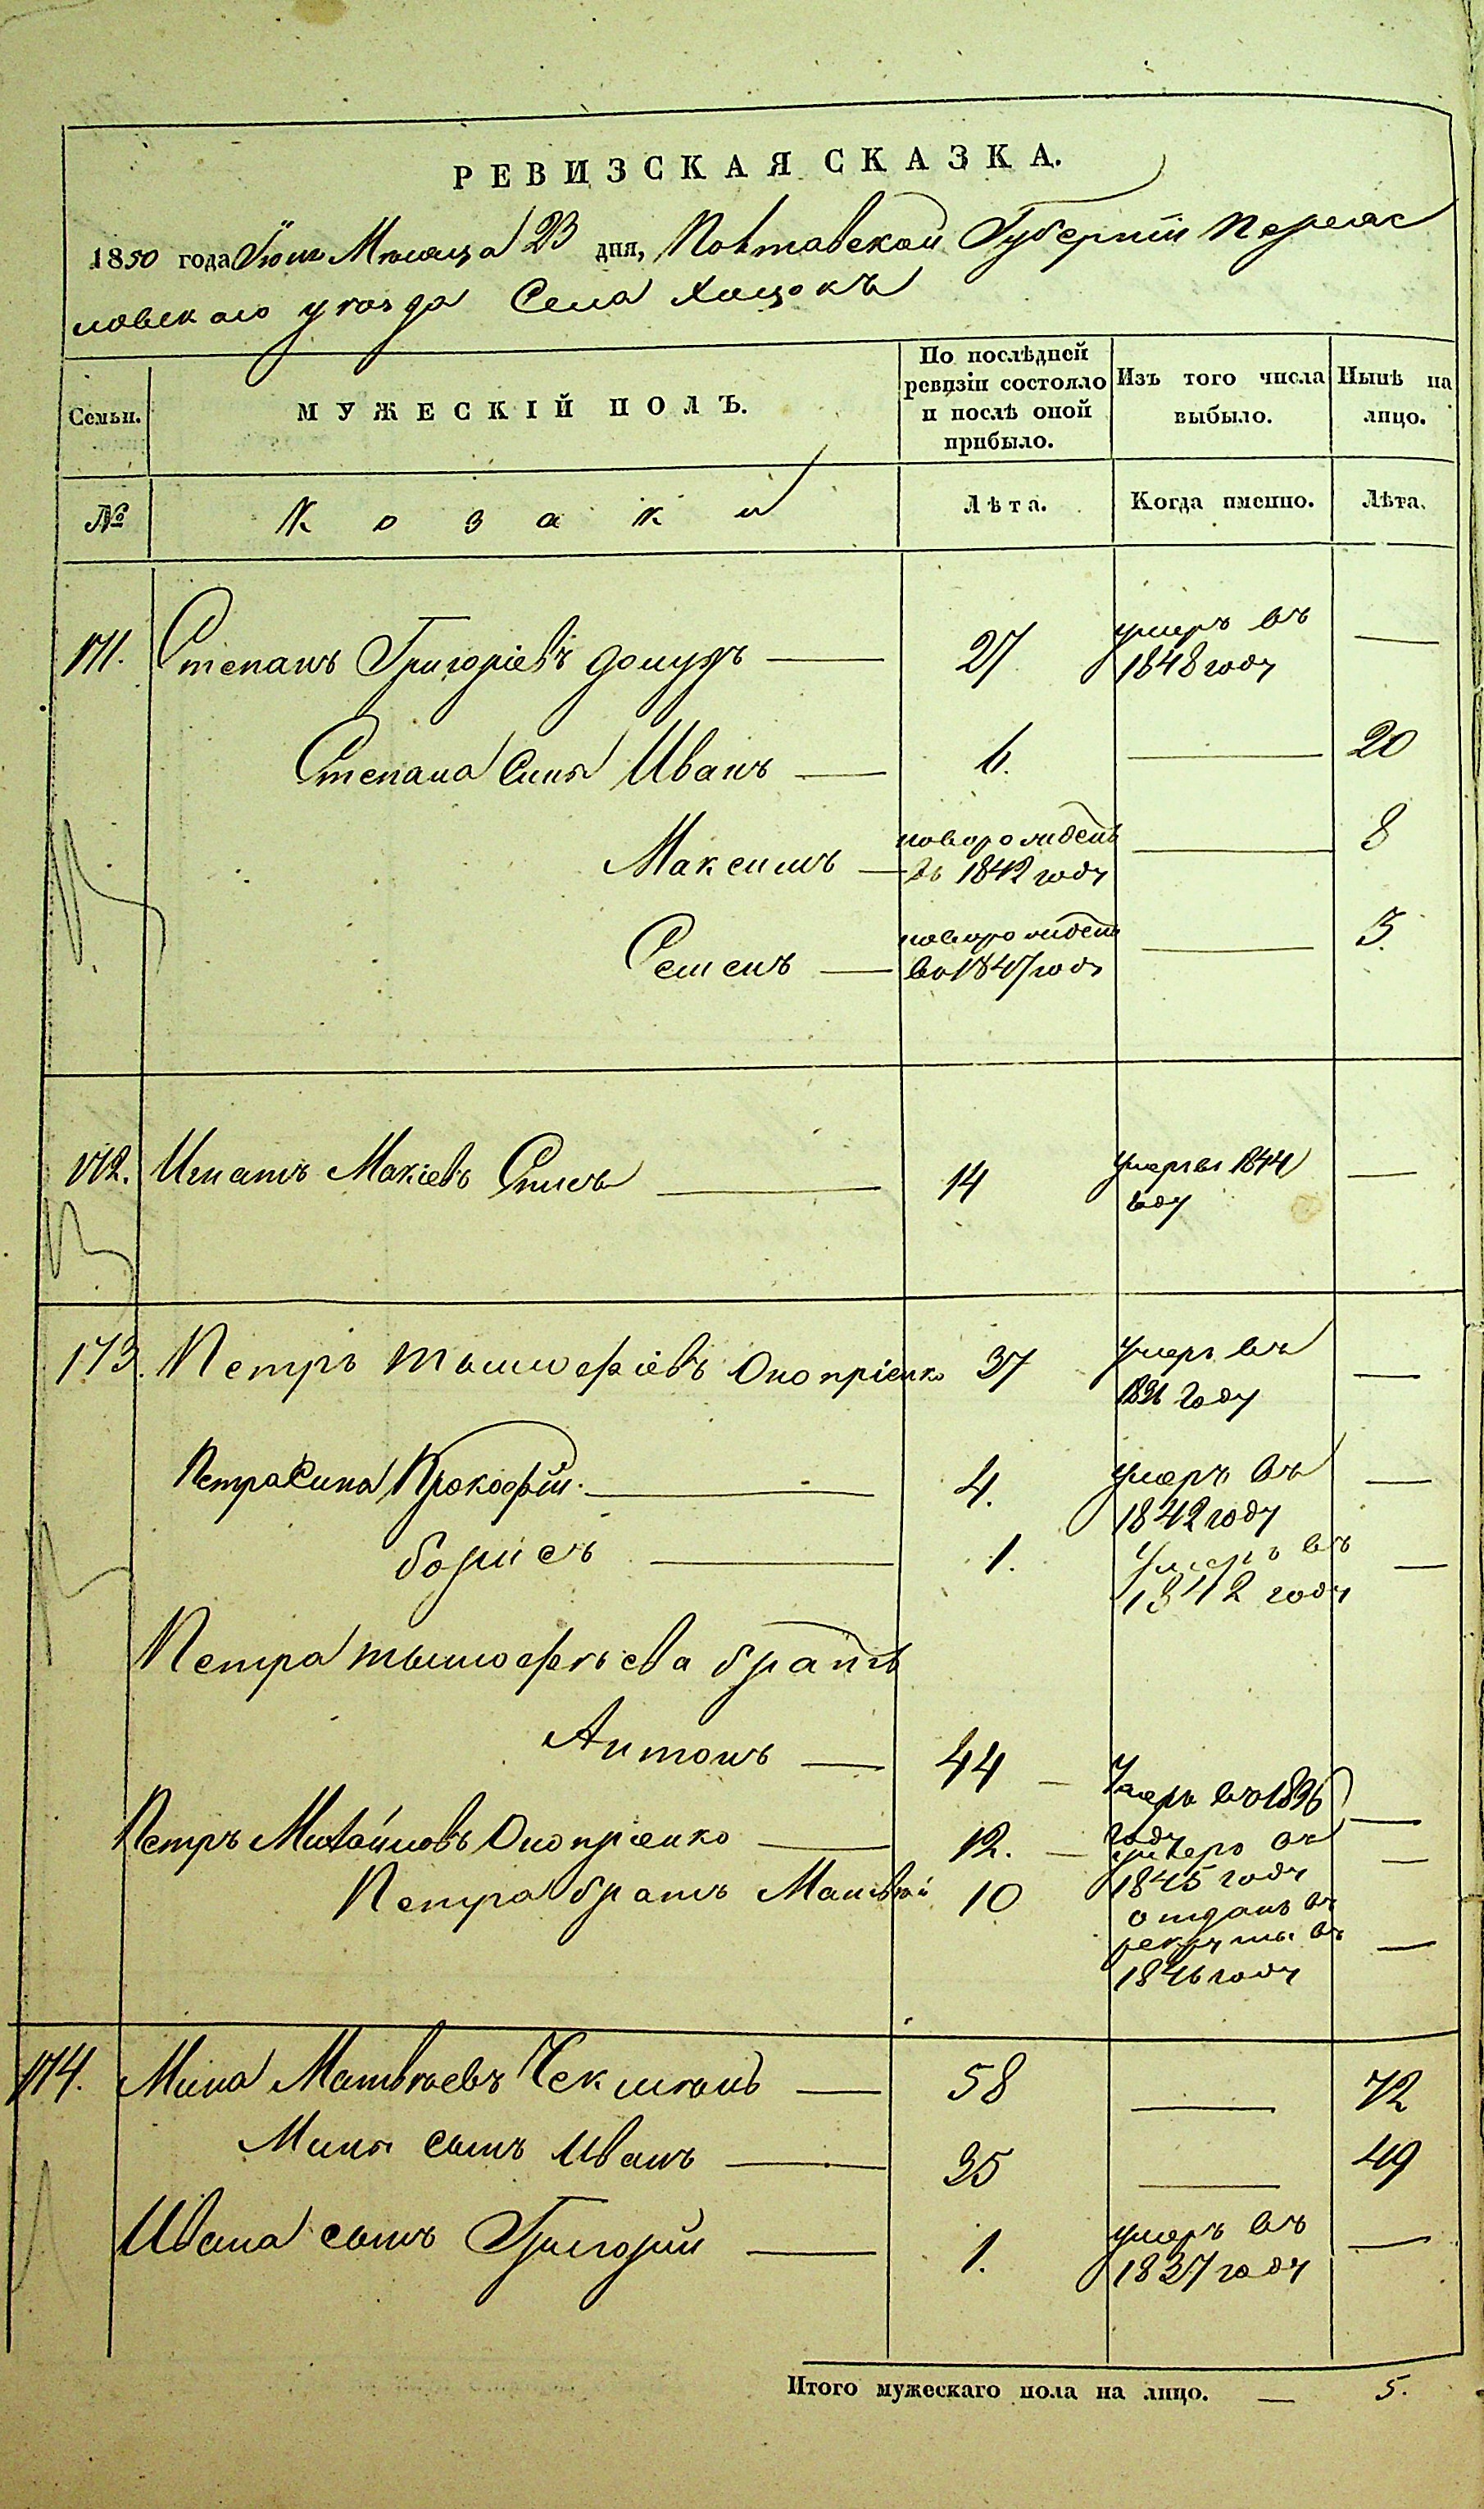 РЕВИЗСКАЯ СКАЗКА.
1850 года Мѣсяца 23 дня, Полтавской Губерніи Переяс
ловского уѣзда Села Хоцокъ
Семьи.
МУЖЕСКІЙ ПОЛЪ.
По послѣдней ревизіи состояло и послѣ оной прибыло.
Изъ того числа выбыло.
Нынѣ на лицо.
№
Козаки
Лѣта.
Когда именно.
Лѣта.
171. Степанъ Григоріевъ 27 умеръ въ —
1848 году
Степана Сынъ Иванъ — 6. — 20
Максимъ — новорожденъ — 8
въ 1842 году
Семенъ — новорожден — 3.
во 1847 году
172. Игнатъ Мокіевъ — 14 умеръ въ 1844 —
году
173. Петръ Тымофіевъ Оноприенко 37 умеръ въ —
1836 году
Петра Сына Прокофій. — 4. умеръ въ —
1842 году
борисъ — 1. умеръ въ —
1842 году
Петра тымофѣева братъ
Антонъ — 44 — Умеръ въ 1836 —
году
Петръ Михайловъ Оноприенко — 12. — умеръ въ —
1845 году
Петра братъ Матвѣй 10 отданъ въ
рекруты въ —
1846 году
174. Мина Матвѣевъ — 58 — 72
Мины сынъ Иванъ — 35 — 49
Ивана сынъ Григорій — 1. умеръ въ —
1837 году
Итого мужескаго пола на лицо. — 5.